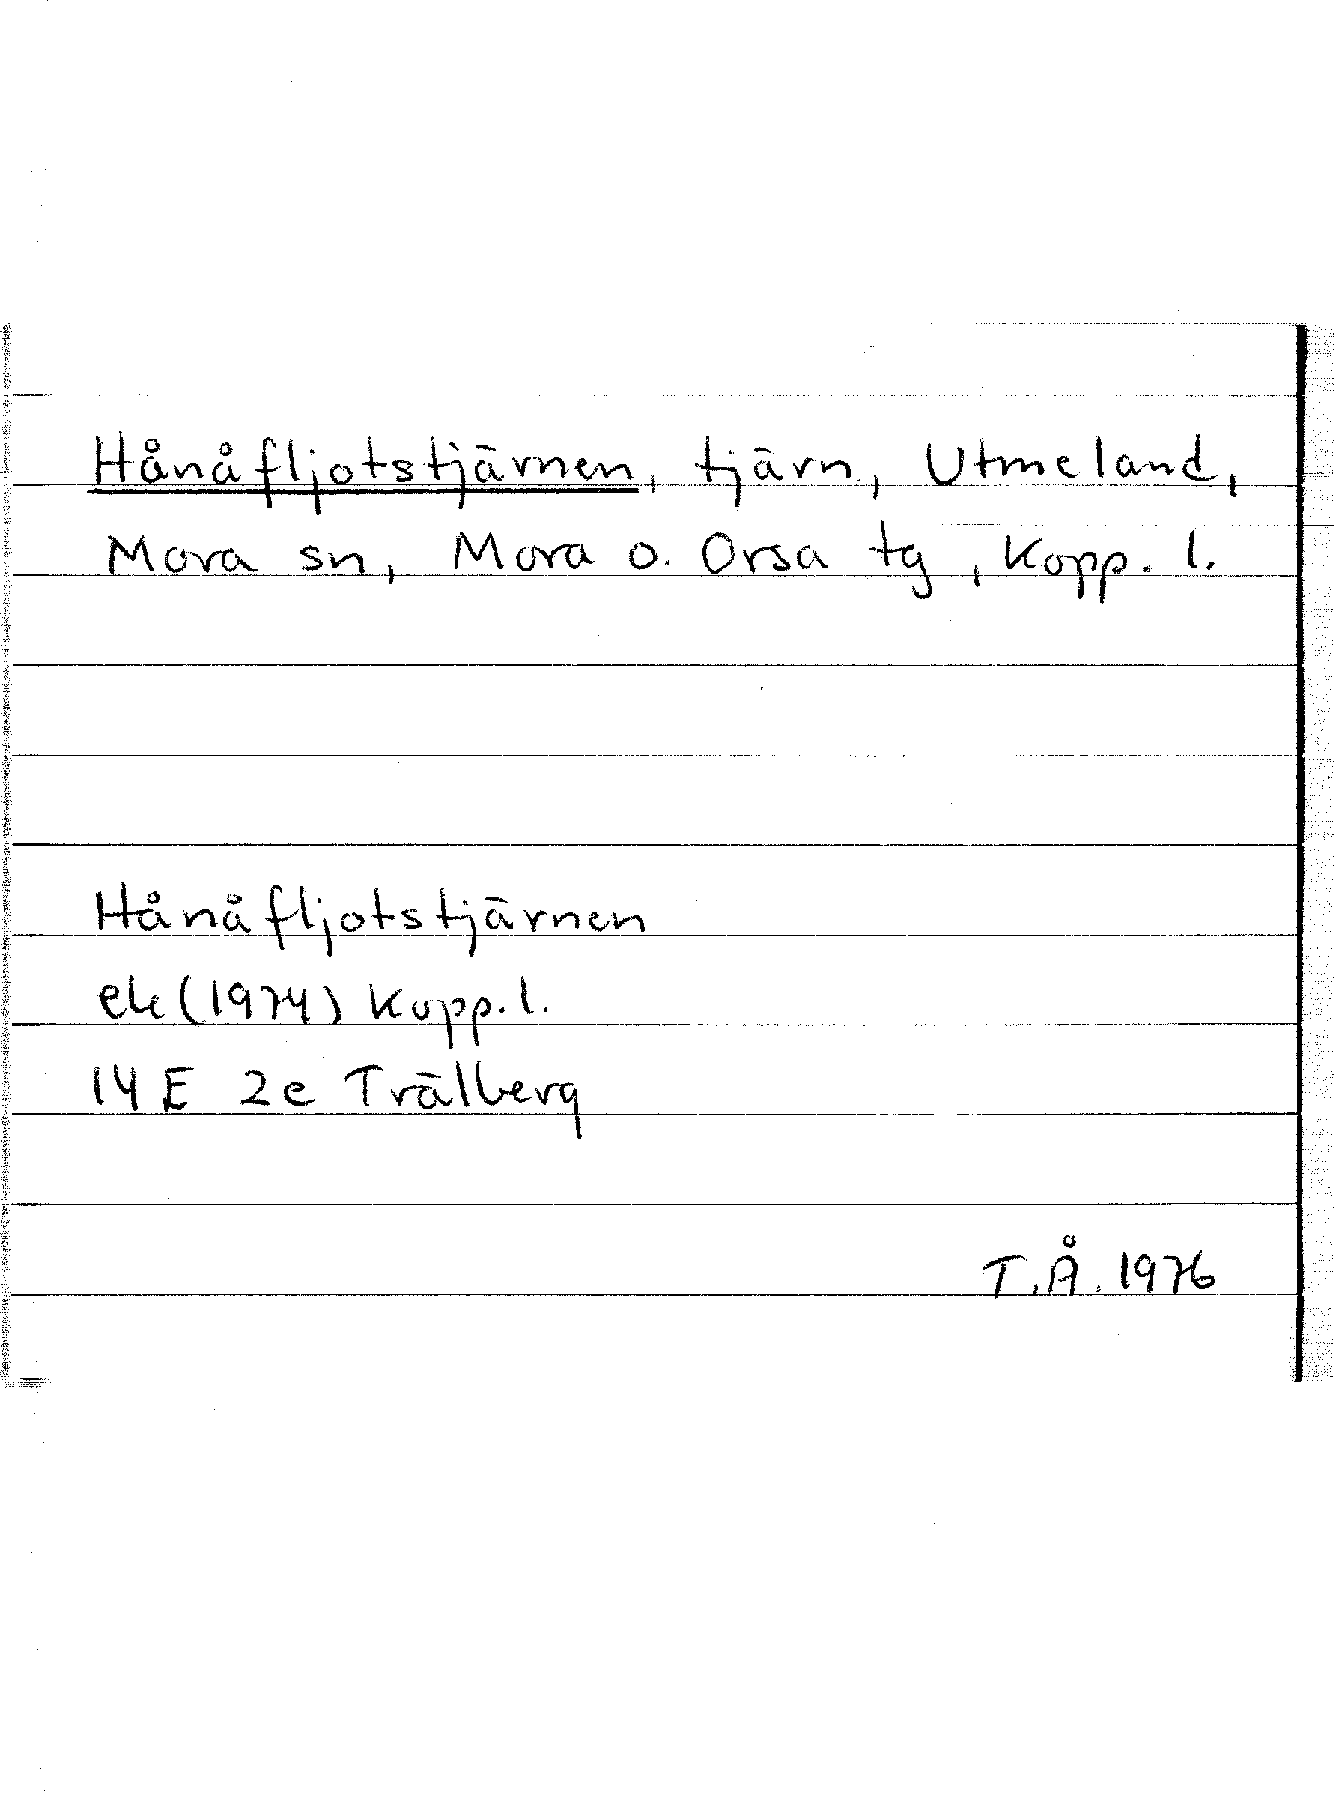 Hånåfljotstjärnen, tjärn, Utmeland,
Mora sn, Mora o. Orsa tg, Kopp. l.
Hånåfljotstjärnen
ek (1974) Kopp. l.
14 E 2e Trälberg
T.Å. 1976